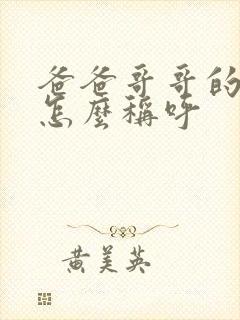 爸爸哥哥的
怎麼稱呼
黄美英